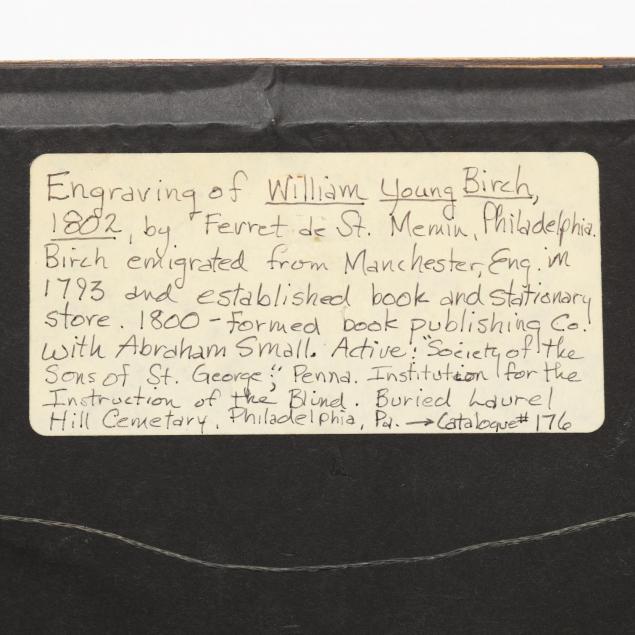 Engraving of William Young Birch,
1802, by Ferret de St. Memin, Philadelphia.
Birch emigrated from Manchester, Eng. in
1793 and established book and stationary
store. 1800 - formed book publishing Co.
with Abraham Small. Active: "Society of the
Sons of St. George;" Penna. Institution for the
Instruction of the Blind. Buried Laurel
Hill Cemetary, Philadelphia, Pa. → Catalogue # 176